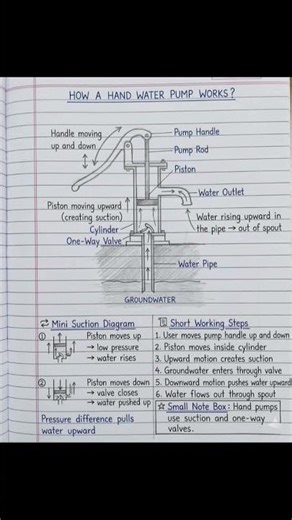 HOW A HAND WATER PUMP WORKS?
Handle moving
up and down
Pump Handle
Pump Rod
Piston
Water Outlet
Piston moving upward
(creating suction)
Cylinder
One-Way Valve
Water rising upward in
the pipe → out of spout
Water Pipe
GROUNDWATER
⇄ Mini Suction Diagram
① Piston moves up
→ low pressure
→ water rises
② Piston moves down
→ valve closes
→ water pushed up
Pressure difference pulls
water upward
Short Working Steps
1. User moves pump handle up and down
2. Piston moves inside cylinder
3. Upward motion creates suction
4. Groundwater enters through valve
5. Downward motion pushes water upward
6. Water flows out through spout
☆ Small Note Box: Hand pumps
use suction and one-way
valves.